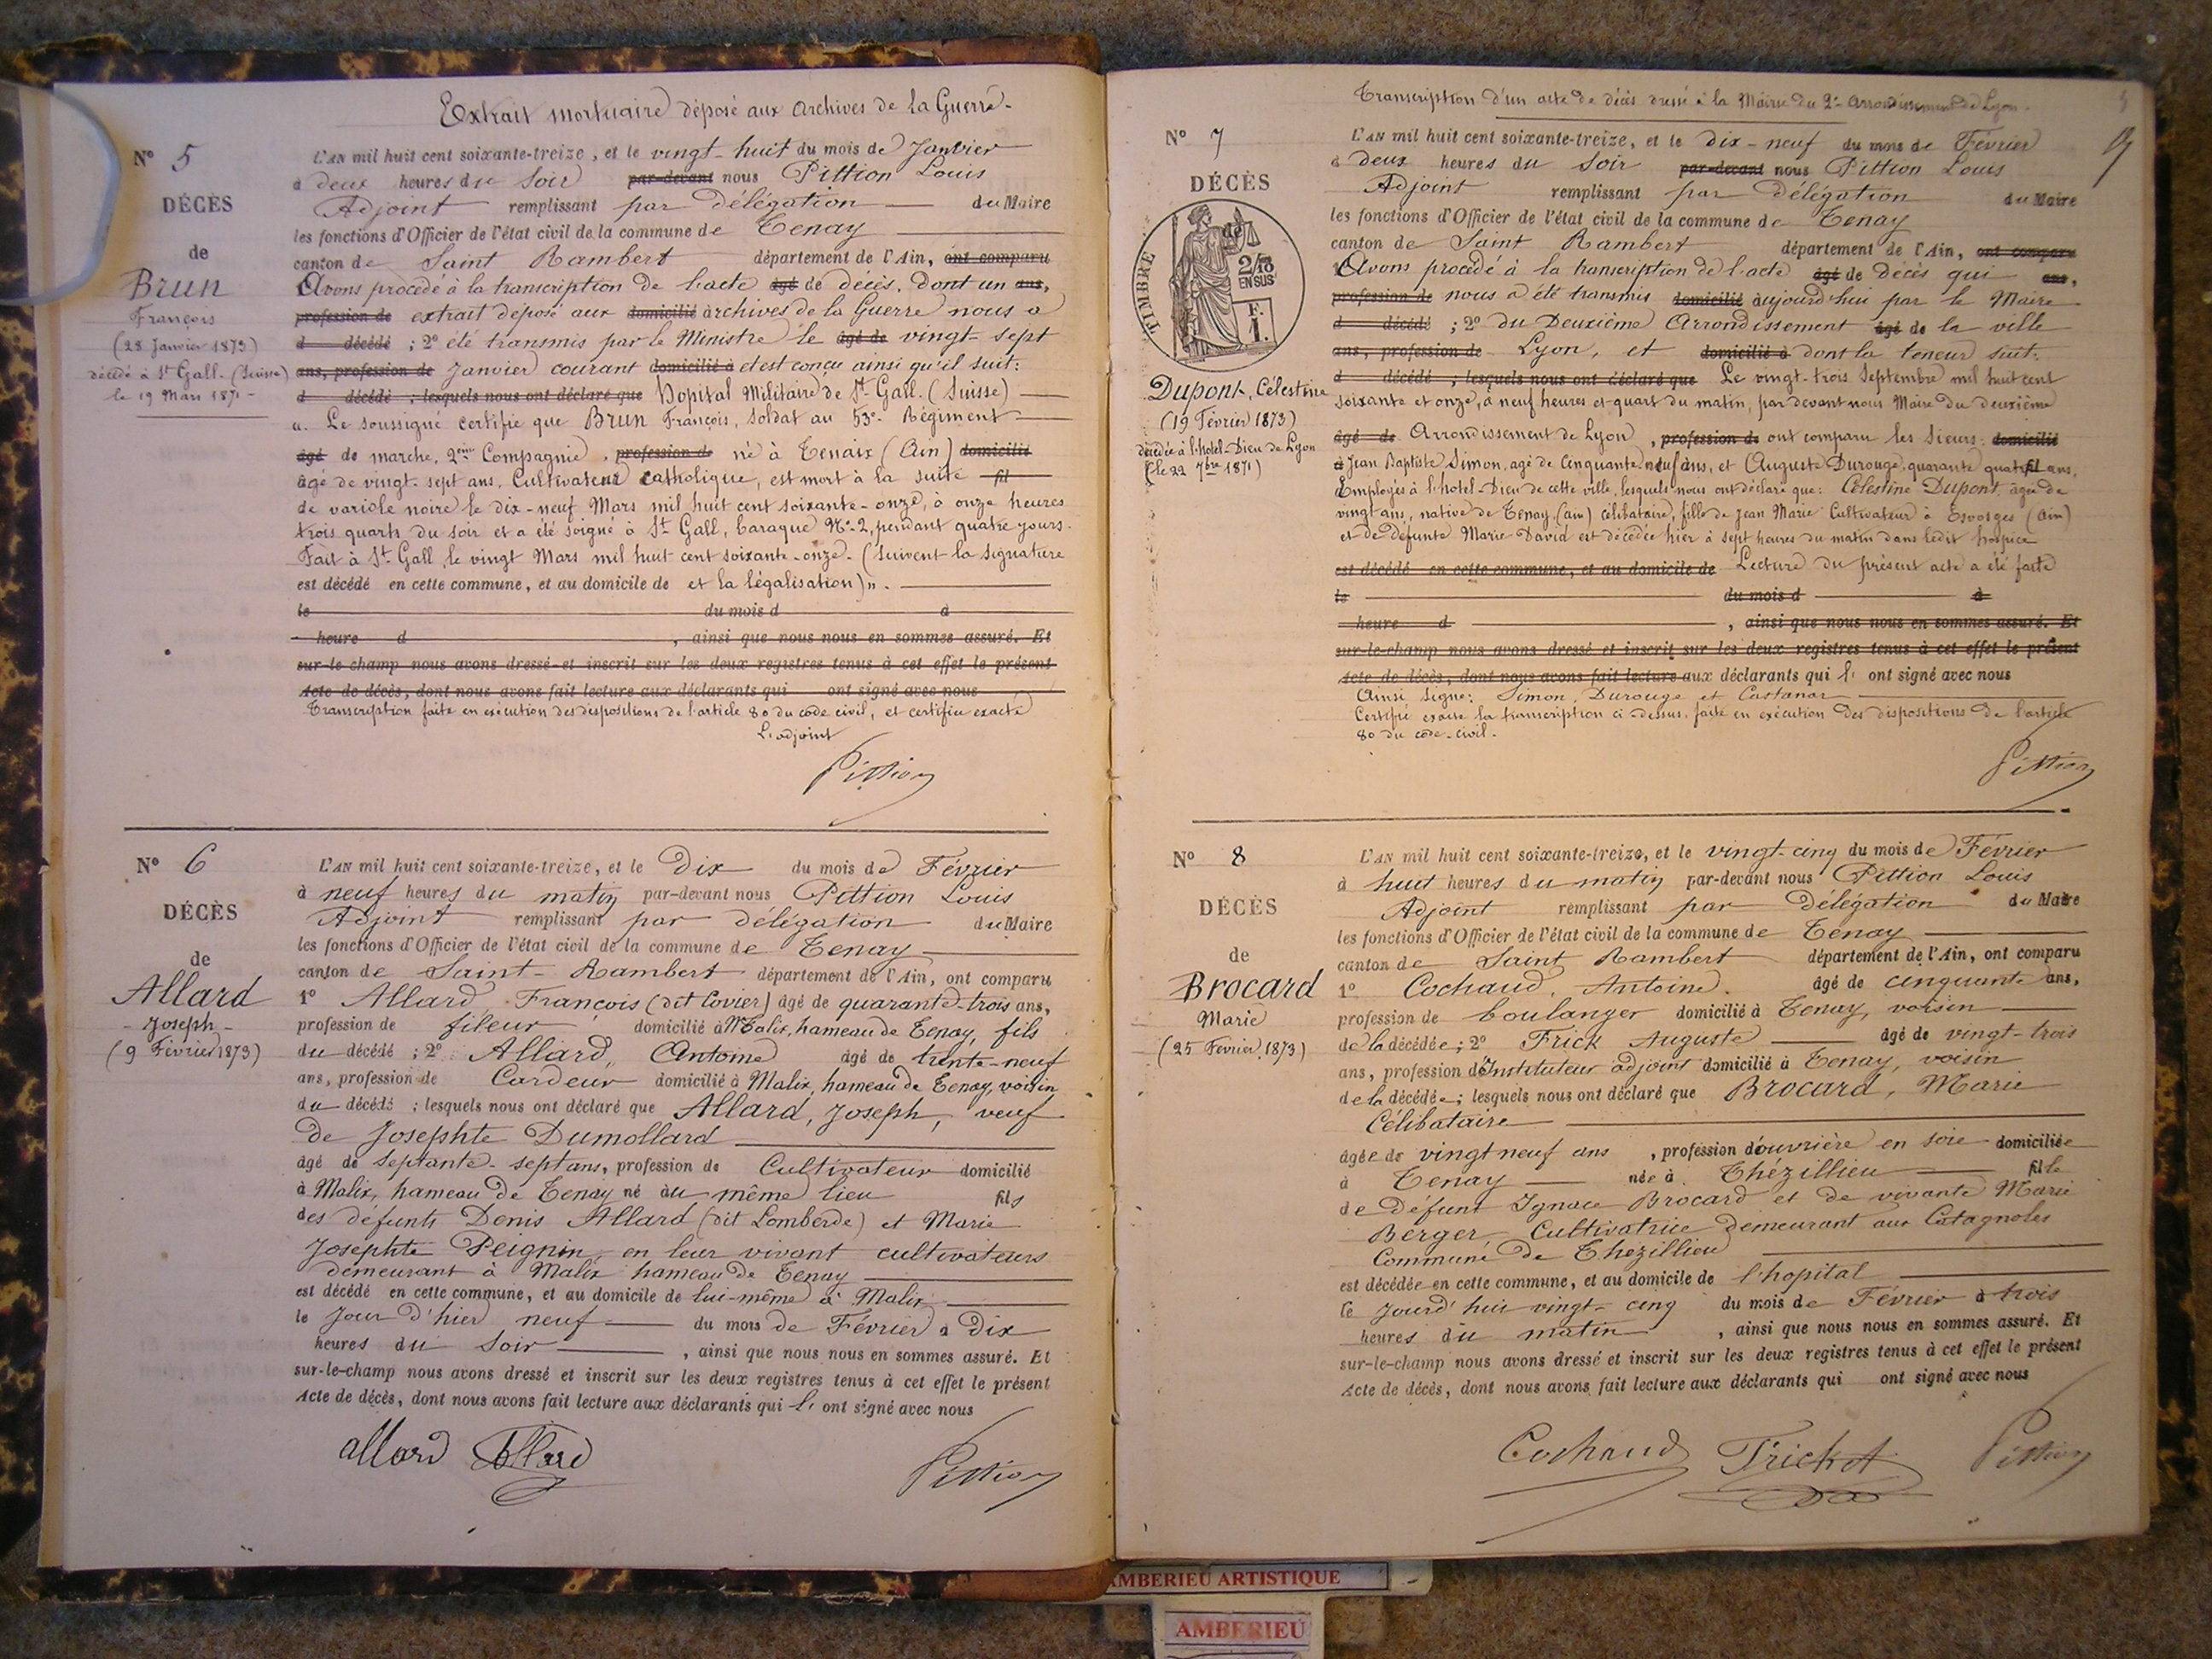 Extrait mortuaire déposé aux archives de la Guerre.
N° 5
DÉCÈS
de
Brun
François
(28 Janvier 1873)
décédé à St Gall. (Suisse)
le 19 Mars 1871
L'AN mil huit cent soixante-treize, et le vingt-huit du mois de Janvier
à deux heures du soir par-devant nous Pittion Louis
Adjoint remplissant par délégation du Maire
les fonctions d'Officier de l'état civil de la commune de Tenay
canton de Saint Rambert département de l'Ain, ont comparu
Avons procédé à la transcription de l'acte âgé de décès. Dont un ans,
profession de extrait déposé aux domicilié archives de la Guerre nous a
d décédé ; 2° été transmis par le Ministre le âgé de vingt-sept
ans, profession de Janvier courant domicilié à et est conçu ainsi qu'il suit:
d décédé ; lesquels nous ont déclaré que Hopital Militaire de St Gall. (Suisse)
". Le soussigné certifie que Brun François, soldat au 53e Régiment
âgé de marche, 2ème Compagnie, profession de né à Tenaix (Ain) domicilié
âgé de vingt-sept ans, Cultivateur catholique, est mort à la suite fil
de variole noire le dix-neuf Mars mil huit cent soixante-onze, à onze heures
trois quarts du soir et a été soigné à St Gall, baraque N°. 2, pendant quatre jours.
Fait à St Gall, le vingt Mars mil huit cent soixante-onze. (Suivent la signature
est décédé en cette commune, et au domicile de et la légalisation)".
le du mois d à
heure d , ainsi que nous nous en sommes assuré. Et
sur-le-champ nous avons dressé et inscrit sur les deux registres tenus à cet effet le présent
Acte de décès, dont nous avons fait lecture aux déclarants qui ont signé avec nous
Transcription faite en exécution des dispositions de l'article 80 du code civil, et certifiée exacte
L'adjoint
Pittion
N° 6
DÉCÈS
de
Allard
Joseph
(9 Février 1873)
L'AN mil huit cent soixante-treize, et le Dix du mois de Février
à neuf heures du matin par-devant nous Pittion Louis
Adjoint remplissant par délégation du Maire
les fonctions d'Officier de l'état civil de la commune de Tenay
canton de Saint-Rambert département de l'Ain, ont comparu
1° Allard François (dit Covier) âgé de quarante-trois ans,
profession de fileur domicilié à Malix, hameau de Tenay, fils
du décédé ; 2° Allard, Antoine âgé de trente-neuf
ans, profession de Cardeur domicilié à Malix, hameau de Tenay, voisin
du décédé ; lesquels nous ont déclaré que Allard, Joseph, veuf
de Josephte Dumollard
âgé de septante-sept ans, profession de Cultivateur domicilié
à Malix, hameau de Tenay né au même lieu fils
des défunts Denis Allard (dit Lomberde) et Marie
Josephte Peignin, en leur vivant cultivateurs
demeurant à Malix hameau de Tenay
est décédé en cette commune, et au domicile de lui-même à Malix
le Jour d'hier neuf du mois de Février à Dix
heures du soir , ainsi que nous nous en sommes assuré. Et
sur-le-champ nous avons dressé et inscrit sur les deux registres tenus à cet effet le présent
Acte de décès, dont nous avons fait lecture aux déclarants qui l' ont signé avec nous
allard Allard Pittion
Transcription d'un acte de décès dressé à la Mairie du 2e arrondissement de Lyon.
N° 7
DÉCÈS
de
TIMBRE
2/10
EN SUS
F.
1.
Dupont, Célestine
(19 Février 1873)
décédée à l'hotel-Dieu de Lyon
(le 22 7bre 1871)
L'AN mil huit cent soixante-treize, et le dix-neuf du mois de Février
à deux heures du soir par-devant nous Pittion Louis
Adjoint remplissant par délégation du Maire
les fonctions d'Officier de l'état civil de la commune de Tenay
canton de Saint Rambert département de l'Ain, ont comparu
Avons procédé à la transcription de l'acte âgé de Décès qui ans,
profession de nous a été transmis domicilié aujourd'hui par le Maire
d décédé ; 2° du Deuxième Arrondissement âgé de la ville
ans, profession de Lyon, et domicilié à dont la teneur suit:
d décédé ; lesquels nous ont déclaré que Le vingt-trois Septembre mil huit cent
soixante et onze, à neuf heures et quart du matin, par devant nous Maire du deuxième
âgé de Arrondissement de Lyon, profession de ont comparu les sieurs: domicilié
à Jean Baptiste Simon, agé de cinquante neuf ans, et Auguste Durouge, quarante quatre fil ans,
Employés à l'hotel-Dieu de cette ville, lesquels nous ont déclaré que: Célestine Dupont, âgée de
vingt ans, native de Tenay, (ain) célibataire, fille de Jean Marie Cultivateur à Evosges (Ain)
et de Défunte Marie David est décédée hier à sept heures du matin dans ledit hospice
est décédé en cette commune, et au domicile de Lecture du présent acte a été faite
le du mois d à
heure d , ainsi que nous nous en sommes assuré. Et
sur-le-champ nous avons dressé et inscrit sur les deux registres tenus à cet effet le présent
Acte de décès, dont nous avons fait lecture aux déclarants qui l' ont signé avec nous
Ainsi signé: Simon, Durouge et Castanar
Certifié exacte la transcription ci-dessus, faite en exécution des dispositions de l'article
80 du code-civil.
Pittion
N° 8
DÉCÈS
de
Brocard
Marie
(25 Février 1873)
L'AN mil huit cent soixante-treize, et le vingt-cinq du mois de Février
à huit heures du matin par-devant nous Pittion Louis
Adjoint remplissant par Délégation du Maire
les fonctions d'Officier de l'état civil de la commune de Tenay
canton de Saint Rambert département de l'Ain, ont comparu
1° Cochaud, Antoine. âgé de cinquante ans,
profession de boulanger domicilié à Tenay, voisin
de la décédée ; 2° Frick Auguste âgé de vingt-trois
ans, profession d'Instituteur adjoint domicilié à Tenay, voisin
de la décédée ; lesquels nous ont déclaré que Brocard, Marie
Célibataire
âgée de vingt neuf ans , profession d'ouvrière en soie domiciliée
à Tenay née à Thézillieu fille
de défunt Ignace Brocard et de vivante Marie
Berger Cultivatrice demeurant aux Catagnoles
Commune de Thezillieu
est décédée en cette commune, et au domicile de l'hopital
le Jourd'hui vingt-cinq du mois de Février à trois
heures du matin , ainsi que nous nous en sommes assuré. Et
sur-le-champ nous avons dressé et inscrit sur les deux registres tenus à cet effet le présent
Acte de décès, dont nous avons fait lecture aux déclarants qui ont signé avec nous
Cochaud Frick A Pittion
AMBERIEU ARTISTIQUE
AMBERIEU